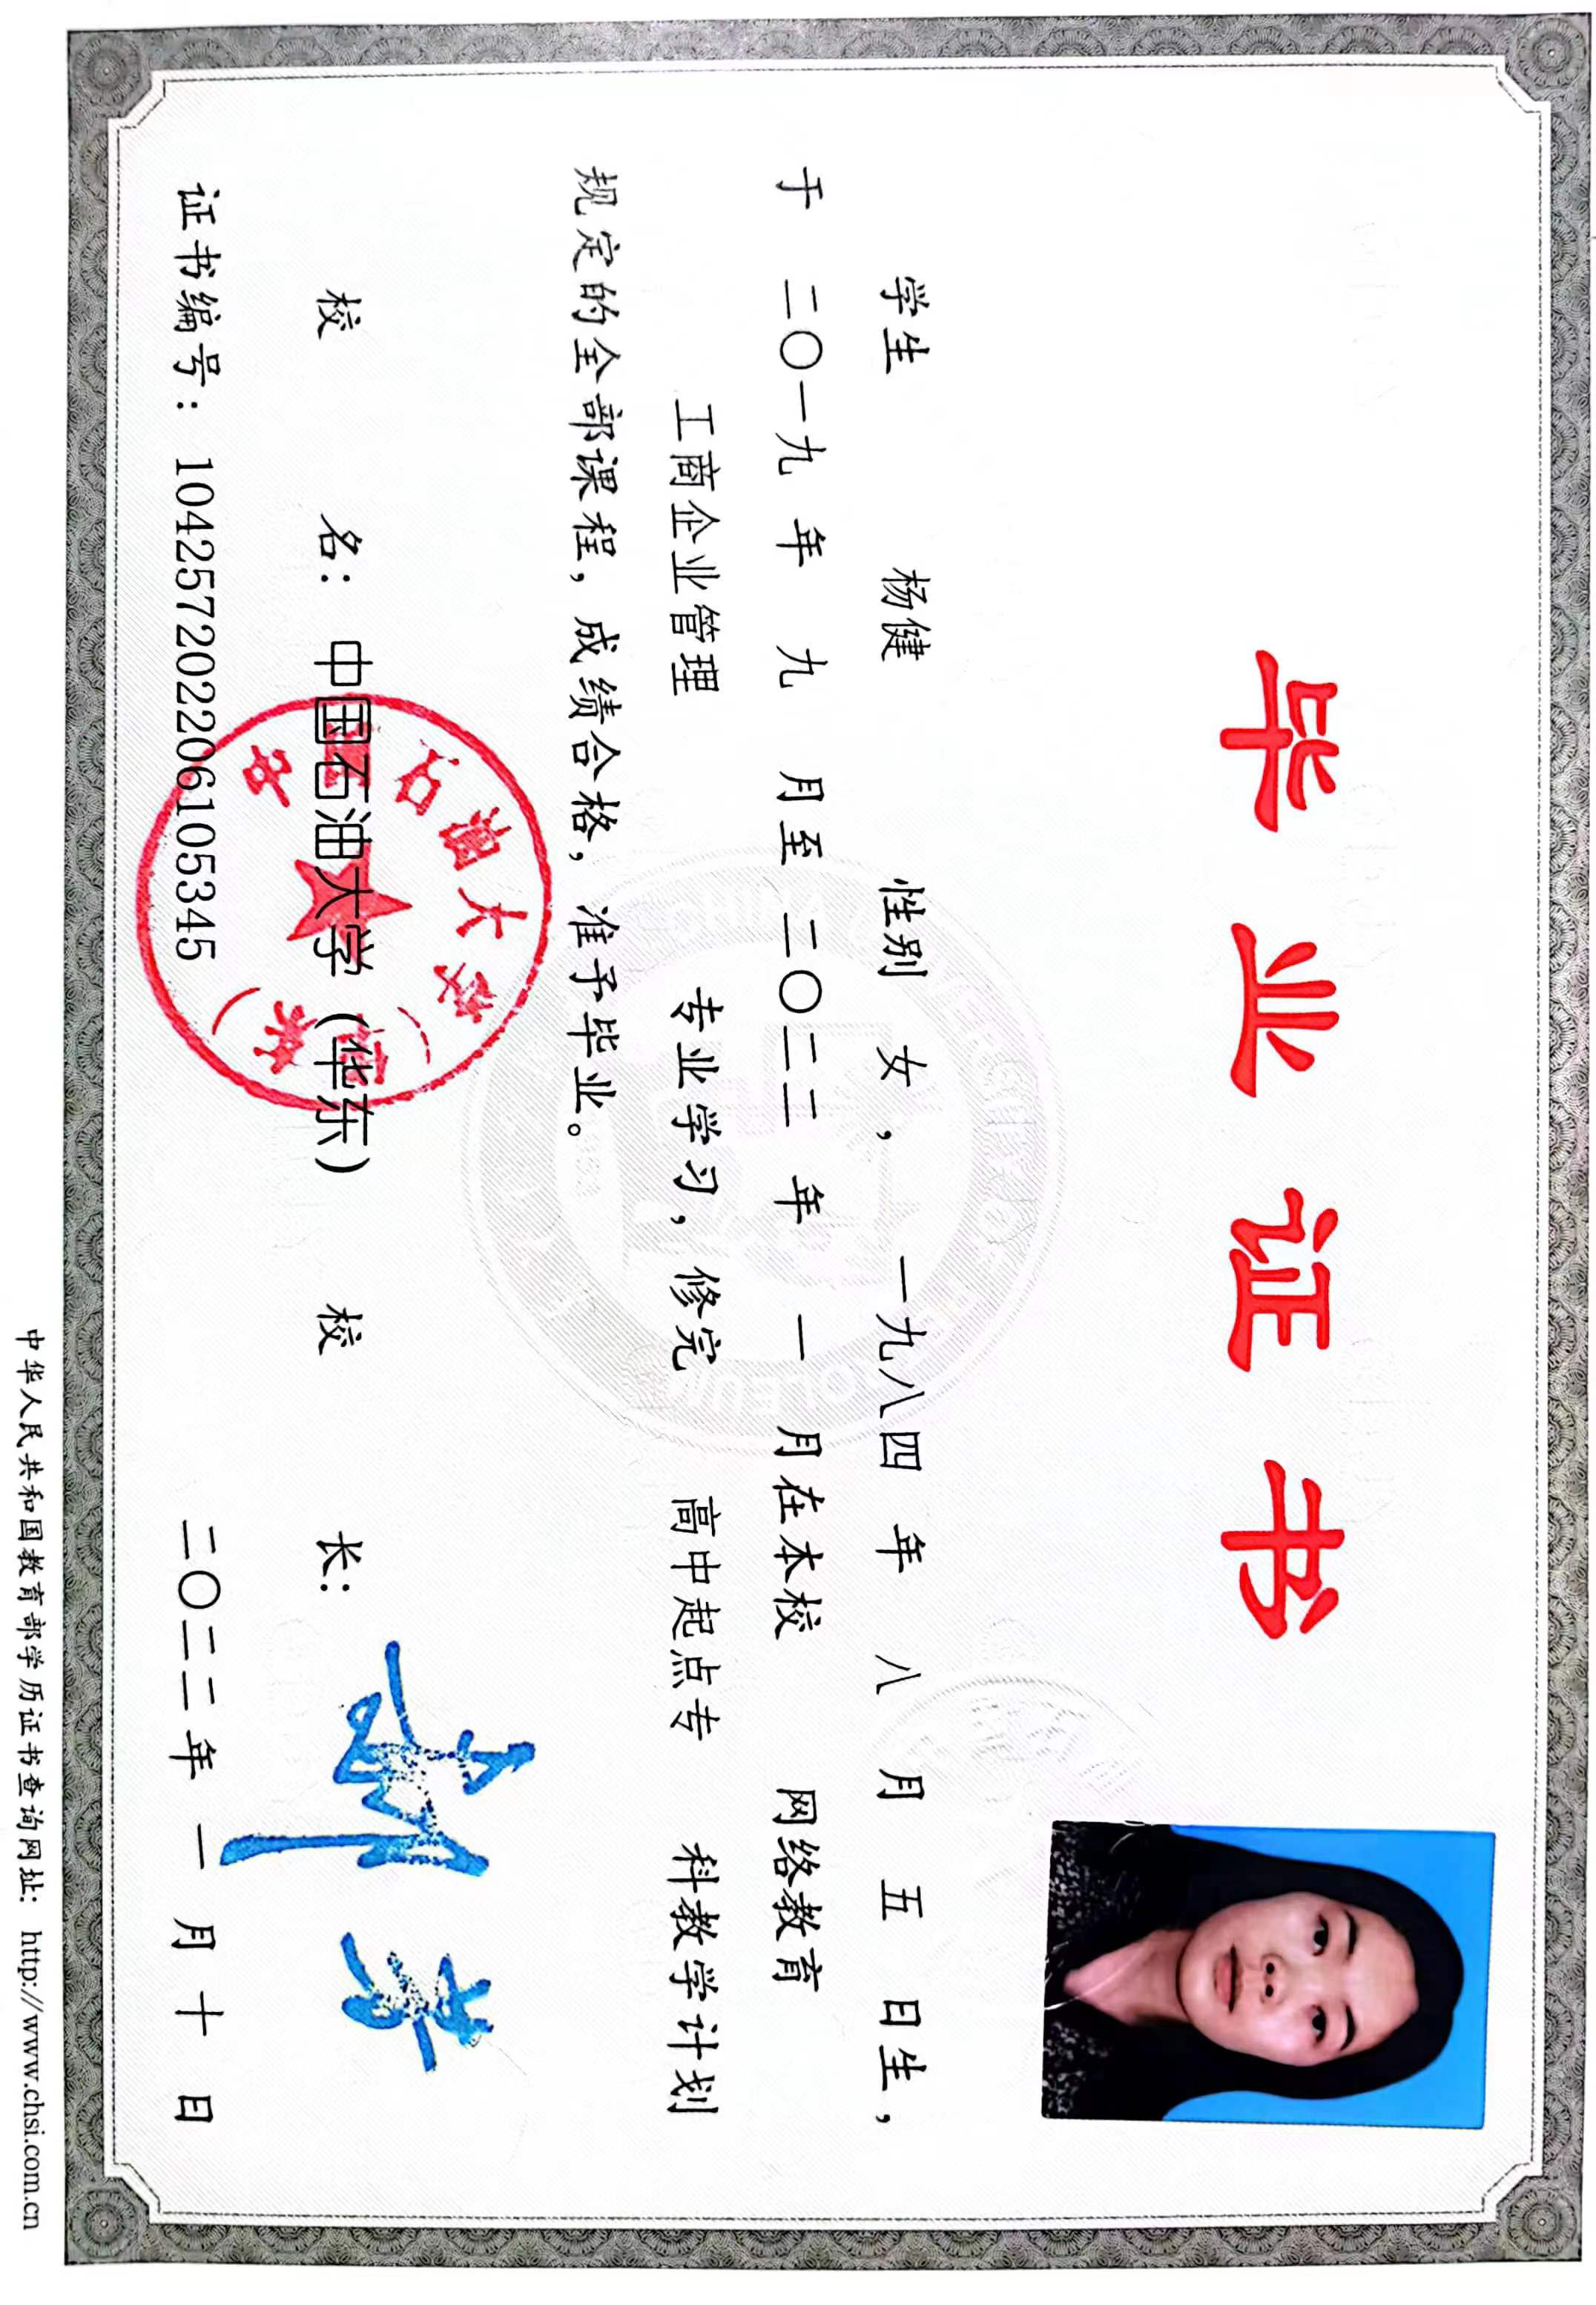 毕业证书
学生 杨健 性别 女， 一九八四 年 八 月 五 日生，
于 二〇一九 年 九 月至 二〇二二 年 一 月在本校 网络教育
工商企业管理 专业学习，修完 高中起点专 科教学计划
规定的全部课程，成绩合格，准予毕业。
校 名：中国石油大学（华东） 校 长：
证书编号：104257202206105345 二〇二二年 一 月 十 日
中华人民共和国教育部学历证书查询网址： http://www.chsi.com.cn